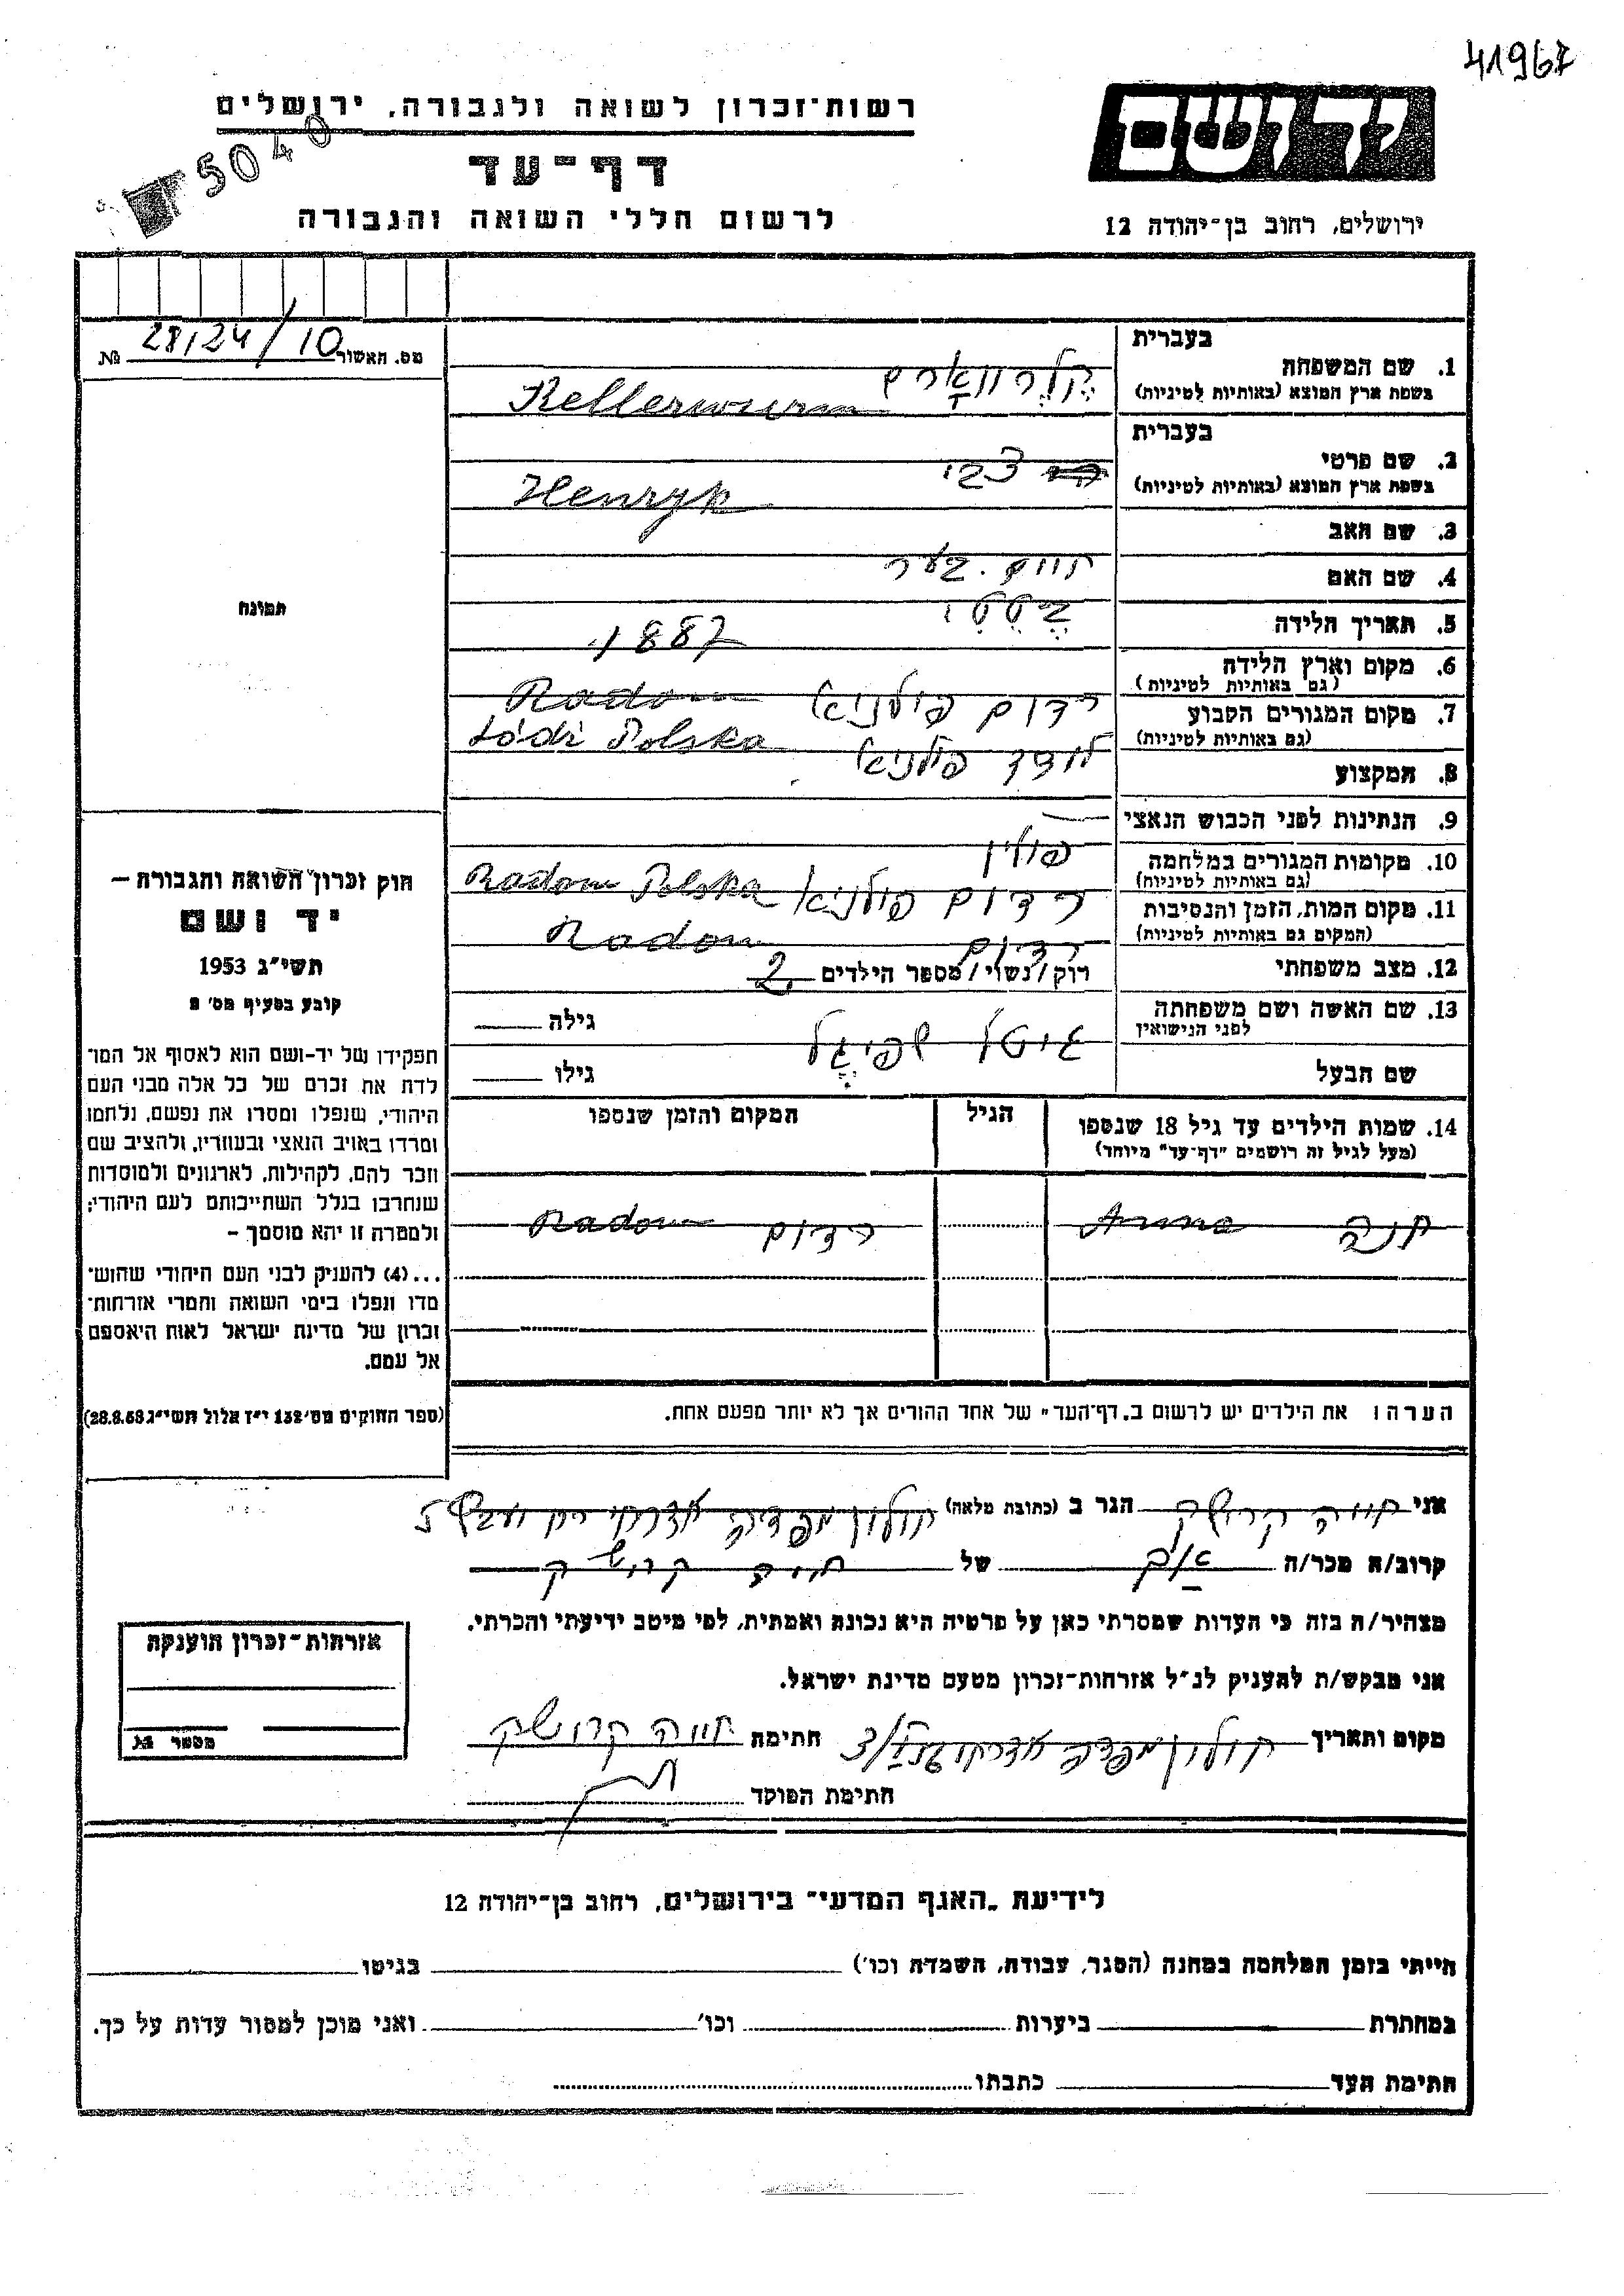 41967
רשות-זכרון לשואה ולגבורה, ירושלים
יד ושם
5040
דף-עד
לרשום חללי השואה והגבורה
ירושלים, רחוב בן-יהודה 12
מס. האשור 28124/10 №
תמונה
חוק זכרון השואה והגבורה —
יד ושם
תשי״ג 1953
קובע בסעיף מס׳ 2
תפקידו של יד-ושם הוא לאסוף אל המו־
לדת את זכרם של כל אלה מבני העם
היהודי, שנפלו ומסרו את נפשם, נלחמו
ומרדו באויב הנאצי ובעוזריו, ולהציב שם
וזכר להם, לקהילות, לארגונים ולמוסדות
שנחרבו בגלל השתייכותם לעם היהודי;
ולמטרה זו יהא מוסמך —
...(4) להעניק לבני העם היהודי שהוש־
מדו ונפלו בימי השואה והמרי אזרחות־
זכרון של מדינת ישראל לאות היאספם
אל עמם.
(ספר החוקים מס׳ 132 י״ז אלול תשי״ג 28.8.53)
בעברית
1. שם המשפחה קלרווארם
בשפת ארץ המוצא (באותיות לטיניות) Kellerwurm
בעברית
2. שם פרטי צבי
בשפת ארץ המוצא (באותיות לטיניות) Henryk
3. שם האב
4. שם האם
5. תאריך הלידה 1887
6. מקום וארץ הלידה
(גם באותיות לטיניות) רדום פולניא Radom
7. מקום המגורים הקבוע
(גם באותיות לטיניות) לודז פולניא Łódź Polska
8. המקצוע
9. הנתינות לפני הכבוש הנאצי פולין
10. מקומות המגורים במלחמה
(גם באותיות לטיניות) רדום פולניא Radom Polska
11. מקום המות, הזמן והנסיבות
(המקום גם באותיות לטיניות) רדום Radom
12. מצב משפחתי רוק/נשוי/מספר הילדים 2
13. שם האשה ושם משפחתה
לפני הנישואין גיטל שפיגל גילה
שם הבעל גילו
14. שמות הילדים עד גיל 18 שנספו הגיל המקום והזמן שנספו
(מעל לגיל זה רושמים "דף-עד" מיוחד)
חנה Anna רדום Radom
הערה: את הילדים יש לרשום ב„דף-העד" של אחד ההורים אך לא יותר מפעם אחת.
אני חווה קרושק הגר ב (כתובת מלאה) חולון
קרוב/ה מכר/ה של חווה קרושק
מצהיר/ה בזה כי העדות שמסרתי כאן על פרטיה היא נכונה ואמתית, לפי מיטב ידיעתי והכרתי.
אני מבקש/ת להעניק לנ״ל אזרחות-זכרון מטעם מדינת ישראל.
מקום ותאריך חולון חתימה חווה קרושק
חתימת הפוקד
אזרחות-זכרון הוענקה
מספר №
לידיעת „האגף המדעי" בירושלים, רחוב בן-יהודה 12
הייתי בזמן המלחמה במחנה (הסגר, עבודה, השמדה וכו׳) בגיטו
במחתרת ביערות וכו׳ ואני מוכן למסור עדות על כך.
חתימת העד כתבתו